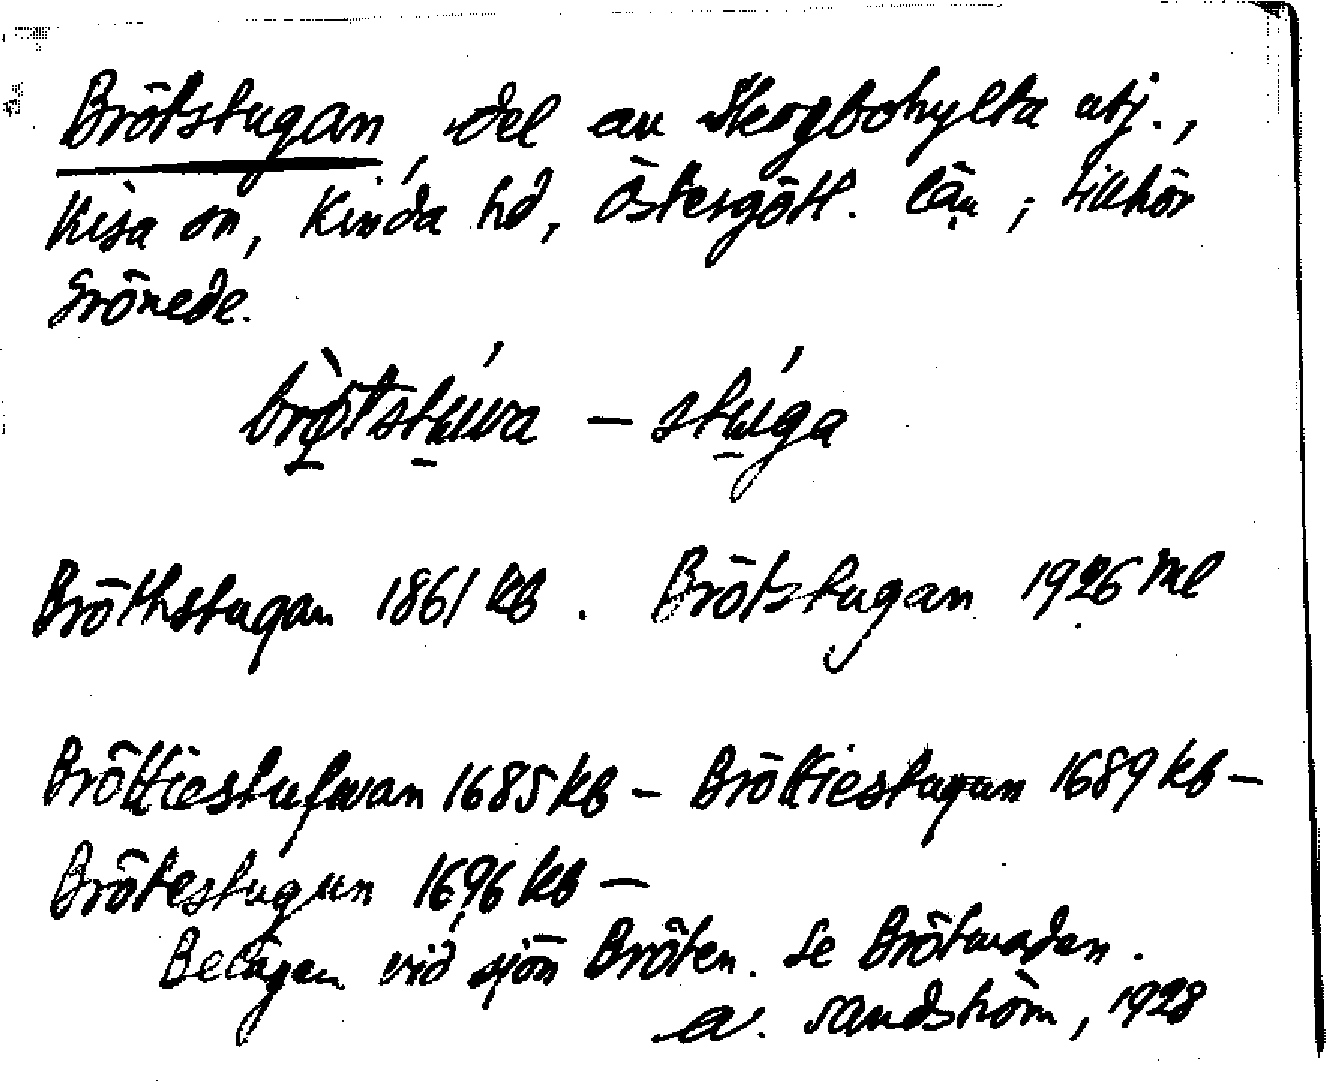 Brötstugan, del av Skogbohylta utj.,
Kisa sn, Kinda hd, Östergötl. län; tillhör
Grönede.
brø̀tstúwa – stúga
Bröthstugan 1861 kb. Brötstugan 1926 ml
Bröttiestufwan 1685 kb – Bröttiestugan 1689 kb –
Brötestugun 1696 kb –
Belägen vid sjön Bröten. Se Brötmaden.
A. Sandström, 1928